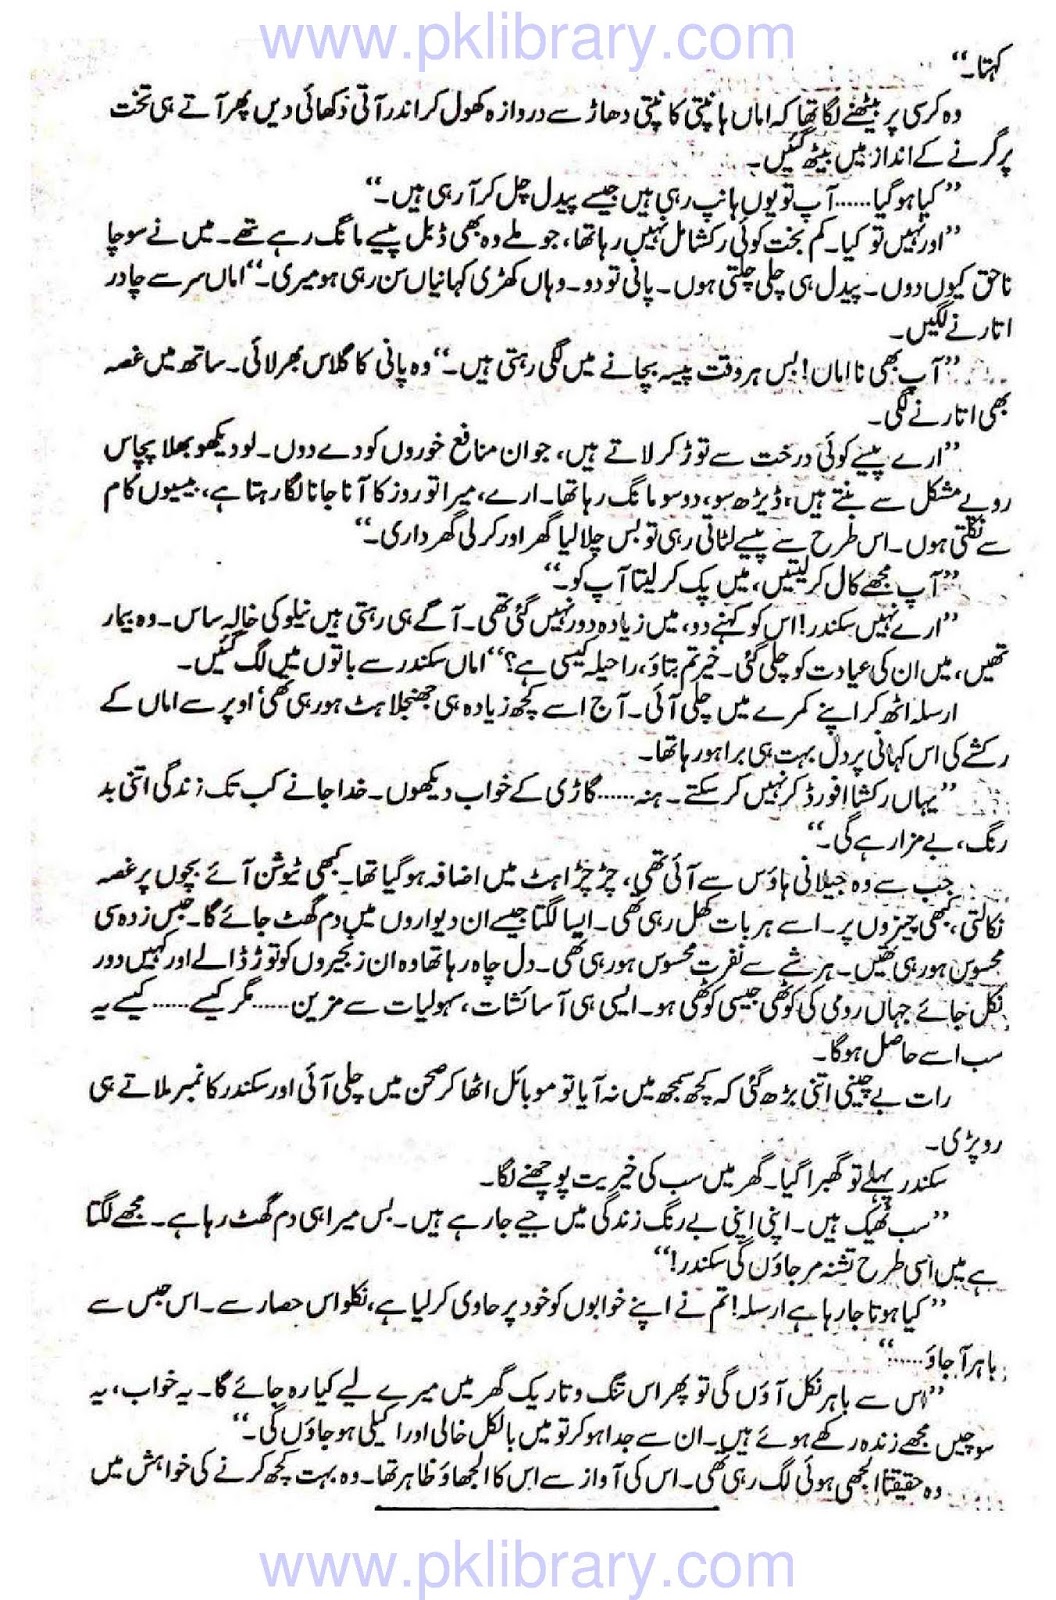 www.pklibrary.com
کہتا۔‘‘
وہ کرسی پر بیٹھنے لگا تھا کہ اماں ہانپتی کانپتی دھاڑ سے دروازہ کھول کر اندر آتی دکھائی دیں پھر آتے ہی تخت
پر گرنے کے انداز میں بیٹھ گئیں۔
’’کیا ہو گیا...... آپ تو یوں ہانپ رہی ہیں جیسے پیدل چل کر آ رہی ہیں۔‘‘
’’اور نہیں تو کیا۔ کم بخت کوئی رکشا مل نہیں رہا تھا، جو ملے وہ بھی ڈبل پیسے مانگ رہے تھے۔ میں نے سوچا
ناحق کیوں دوں۔ پیدل ہی چلی چلتی ہوں۔ پانی تو دو۔ وہاں کھڑی کہانیاں سن رہی ہو میری۔‘‘ اماں سر سے چادر
اتارنے لگیں۔
’’آپ بھی نا اماں! بس ہر وقت پیسہ بچانے میں لگی رہتی ہیں۔‘‘ وہ پانی کا گلاس بھر لائی۔ ساتھ میں غصہ
بھی اتارنے لگی۔
’’ارے پیسے کوئی درخت سے توڑ کر لاتے ہیں، جو ان منافع خوروں کو دے دوں۔ لو دیکھو بھلا پچاس
روپے مشکل سے بنتے ہیں، ڈیڑھ سو، دو سو مانگ رہا تھا۔ ارے، میرا تو روز کا آنا جانا لگا رہتا ہے، بیسیوں کام
سے نکلتی ہوں۔ اس طرح سے پیسے لٹاتی رہی تو بس چلا لیا گھر اور کر لی گھر داری۔‘‘
’’آپ مجھے کال کر لیتیں، میں پک کر لیتا آپ کو۔‘‘
’’ارے نہیں سکندر! اس کو کہنے دو، میں زیادہ دور نہیں گئی تھی۔ آگے ہی رہتی ہیں نیلو کی خالہ ساس۔ وہ بیمار
تھیں، میں ان کی عیادت کو چلی گئی۔ خیر تم بتاؤ، راحیلہ کیسی ہے؟‘‘ اماں سکندر سے باتوں میں لگ گئیں۔
ارسلہ اٹھ کر اپنے کمرے میں چلی آئی۔ آج اسے کچھ زیادہ ہی جھنجلاہٹ ہو رہی تھی‘ اوپر سے اماں کے
رکشے کی اس کہانی پر دل بہت ہی برا ہو رہا تھا۔
’’یہاں رکشا افورڈ کر نہیں کر سکتے۔ ہنہ...... گاڑی کے خواب دیکھوں۔ خدا جانے کب تک زندگی اتنی بد
رنگ، بے مزا رہے گی۔‘‘
جب سے وہ جیلانی ہاؤس سے آئی تھی، چڑچڑاہٹ میں اضافہ ہو گیا تھا۔ کبھی ٹیوشن آئے بچوں پر غصہ
نکالتی، کبھی چیزوں پر۔ اسے ہر بات کھل رہی تھی۔ ایسا لگتا جیسے ان دیواروں میں دم گھٹ جائے گا۔ حبس زدہ سی
محسوس ہو رہی تھیں۔ ہر شے سے نفرت محسوس ہو رہی تھی۔ دل چاہ رہا تھا وہ ان زنجیروں کو توڑ ڈالے اور کہیں دور
نکل جائے جہاں رومی کی کوٹھی جیسی کوٹھی ہو۔ ایسی ہی آسائشات، سہولیات سے مزین...... مگر کیسے...... کیسے یہ
سب اسے حاصل ہو گا۔
رات بے چینی اتنی بڑھ گئی کہ کچھ سمجھ میں نہ آیا تو موبائل اٹھا کر صحن میں چلی آئی اور سکندر کا نمبر ملاتے ہی
رو پڑی۔
سکندر پہلے تو گھبرا گیا۔ گھر میں سب کی خیریت پوچھنے لگا۔
’’سب ٹھیک ہیں۔ اپنی اپنی بے رنگ زندگی میں جیے جا رہے ہیں۔ بس میرا ہی دم گھٹ رہا ہے۔ مجھے لگتا
ہے میں اسی طرح تشنہ مر جاؤں گی سکندر!‘‘
’’کیا ہوتا جا رہا ہے ارسلہ! تم نے اپنے خوابوں کو خود پر حاوی کر لیا ہے، نکلو اس حصار سے۔ اس حبس سے
باہر آ جاؤ......‘‘
’’اس سے باہر نکل آؤں گی تو پھر اس تنگ و تاریک گھر میں میرے لیے کیا رہ جائے گا۔ یہ خواب، یہ
سوچیں مجھے زندہ رکھے ہوئے ہیں۔ ان سے جدا ہو کر تو میں بالکل خالی اور اکیلی ہو جاؤں گی۔‘‘
وہ حقیقتاً الجھی ہوئی لگ رہی تھی۔ اس کی آواز سے اس کا الجھاؤ ظاہر تھا۔ وہ بہت کچھ کرنے کی خواہش میں
www.pklibrary.com